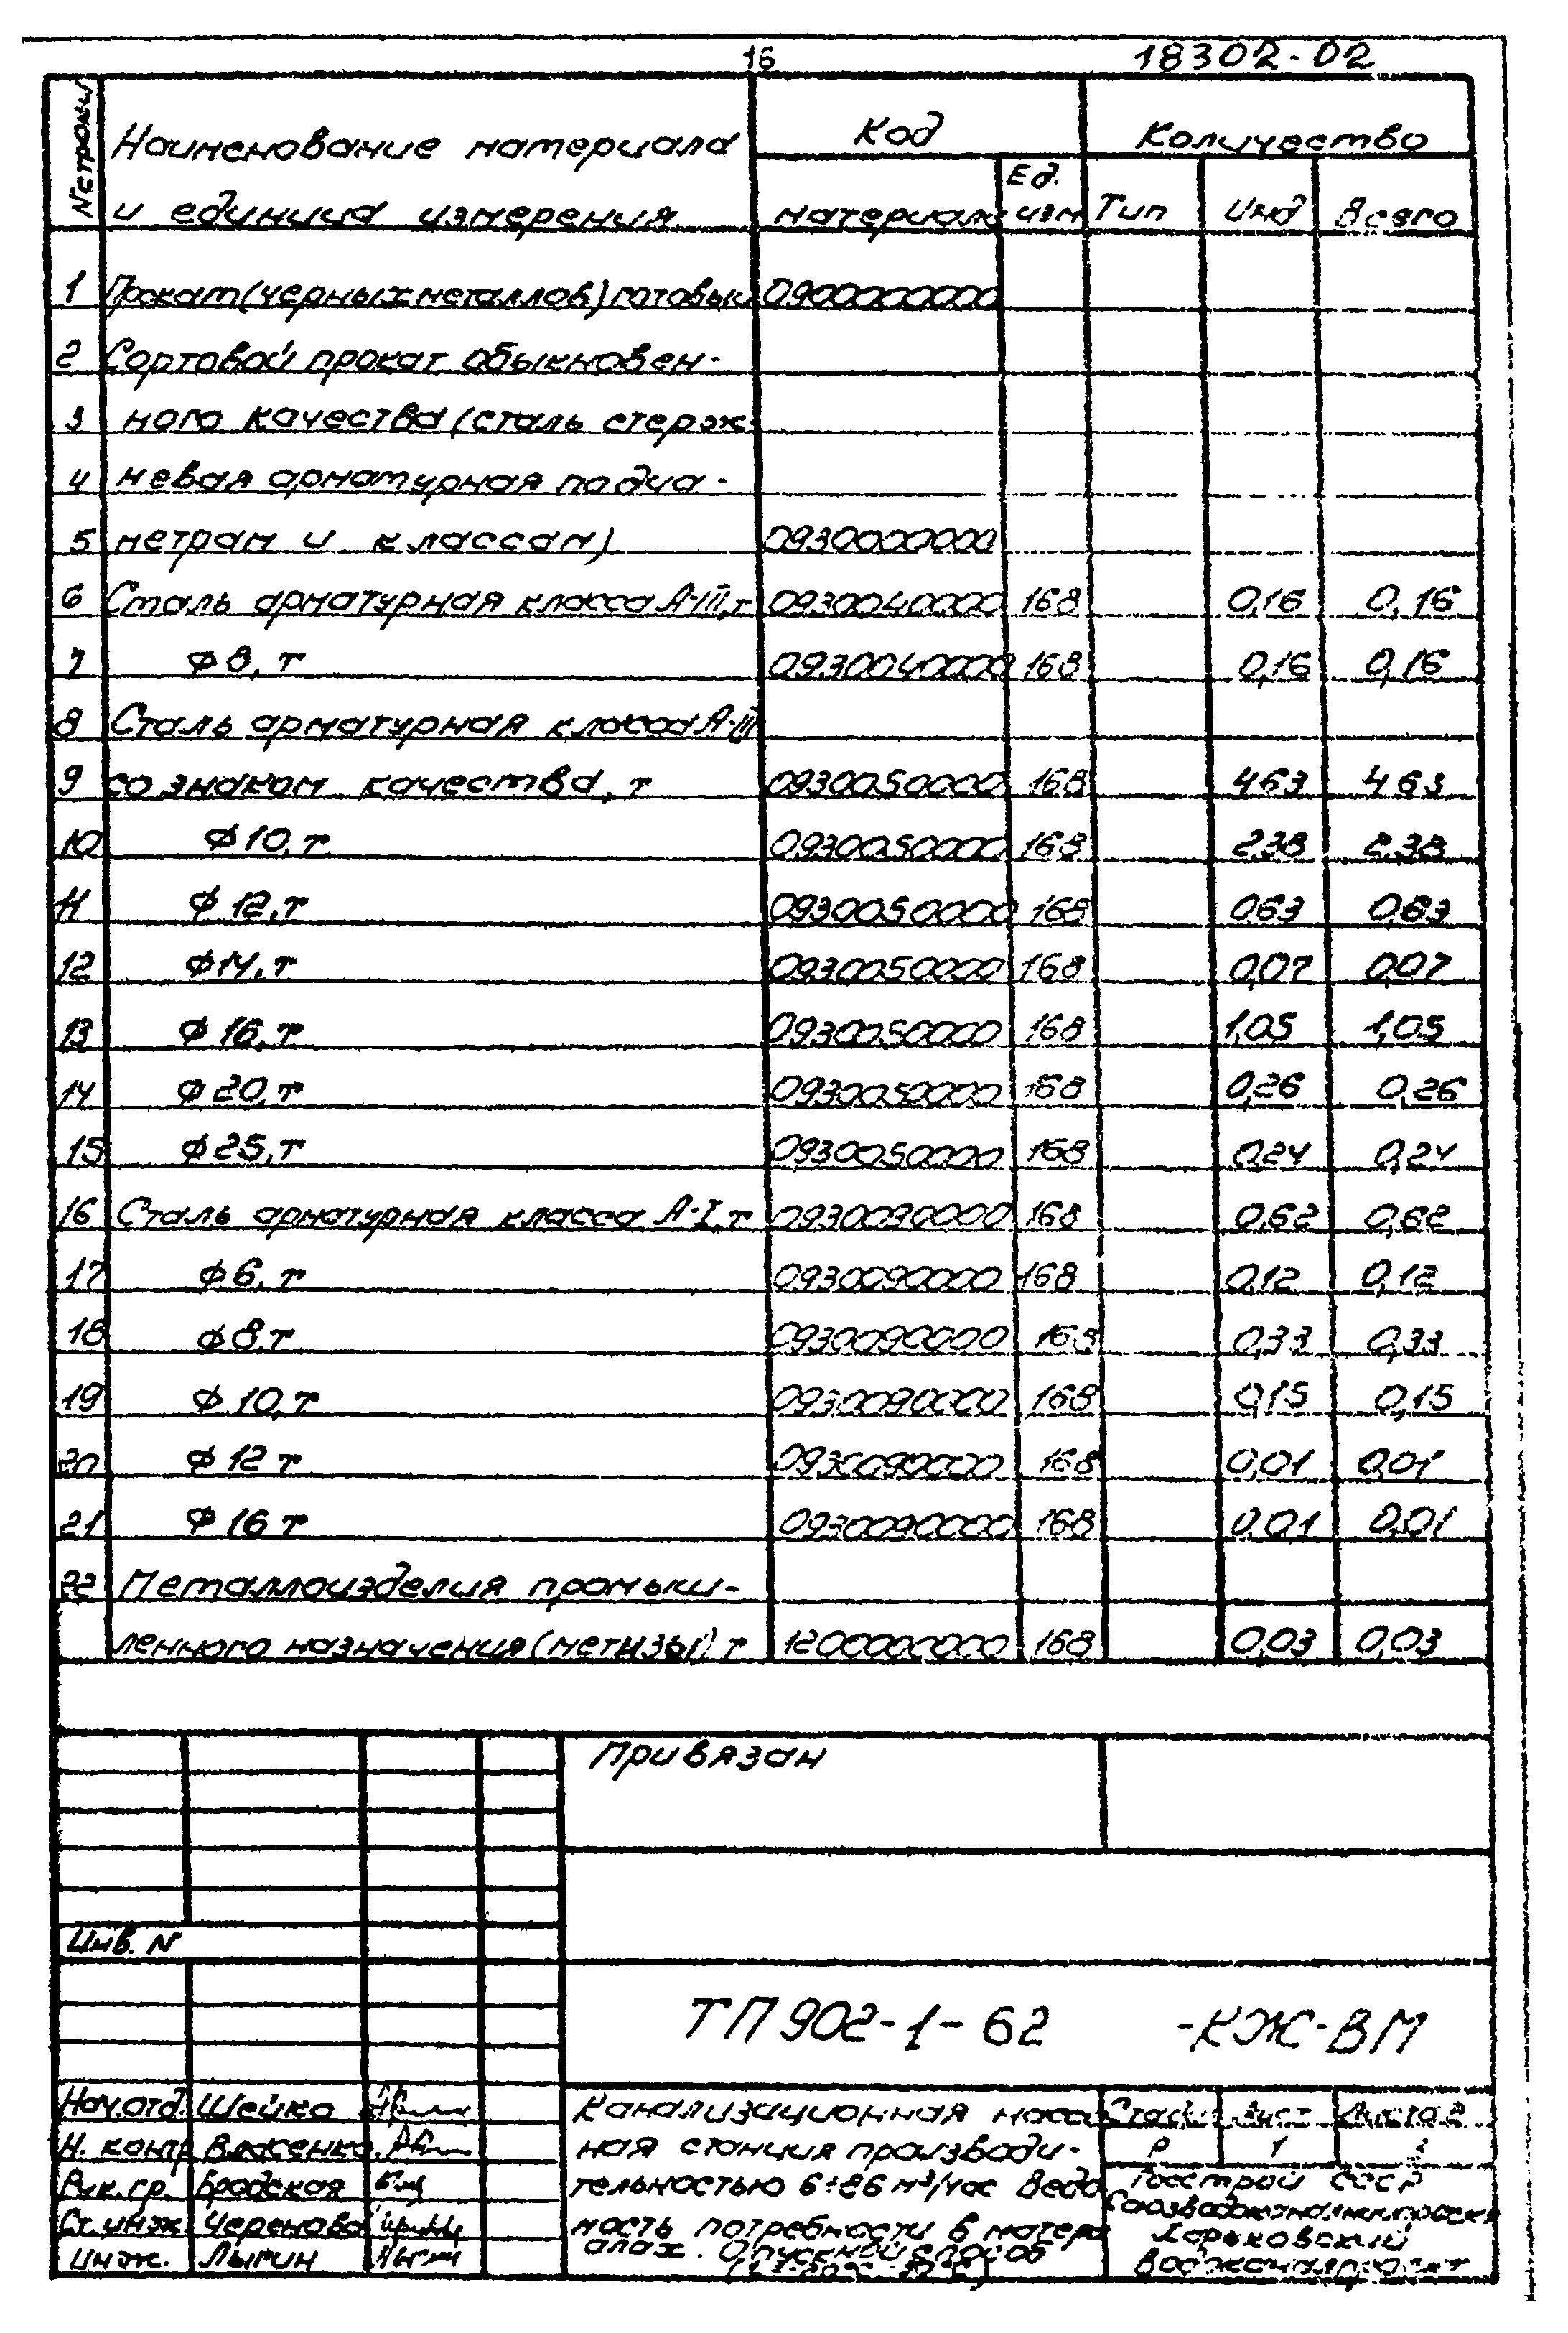 16
18302-02
№ строки
Наименование материала и единица измерения
Код
Количество
материала
Ед. изм
Тип
Инд
Всего
1 Прокат (черных металлов) готовый 0900000000
2 Сортовой прокат обыкновен-
3 ного качества (сталь стерж-
4 невая арматурная по диа-
5 метрам и классам) 0930000000
6 Сталь арматурная класса А-III, т 0930040000 168 0,16 0,16
7 ф 8, т 0930040000 168 0,16 0,16
8 Сталь арматурная класса А-III
9 со знаком качества, т 0930050000 168 4,63 4,63
10 ф 10, т 0930050000 168 2,38 2,38
11 ф 12, т 0930050000 168 0,63 0,63
12 ф 14, т 0930050000 168 0,07 0,07
13 ф 16, т 0930050000 168 1,05 1,05
14 ф 20, т 0930050000 168 0,26 0,26
15 ф 25, т 0930050000 168 0,24 0,24
16 Сталь арматурная класса А-I, т 0930090000 168 0,62 0,62
17 ф 6, т 0930090000 168 0,12 0,12
18 ф 8, т 0930090000 168 0,33 0,33
19 ф 10, т 0930090000 168 0,15 0,15
20 ф 12 т 0930090000 168 0,01 0,01
21 ф 16 т 0930090000 168 0,01 0,01
22 Металлоизделия промыш-
ленного назначения (метизы) т 1200000000 168 0,03 0,03
Привязан
Инв. N
ТП 902-1-62 -КЖ-ВМ
Нач.отд. Шейко
Н. контр Власенко
Рук. гр. Бродская
Ст. инж Черенова
инж. Лыгин
Канализационная насос
ная станция производи-
тельностью 6÷86 м³/час Ведо
мость потребности в матери
алах. Опускной способ
Лист Листов
Р 1
Госстрой СССР
Союзводоканалпроект
Харьковский
Водоканалпроект